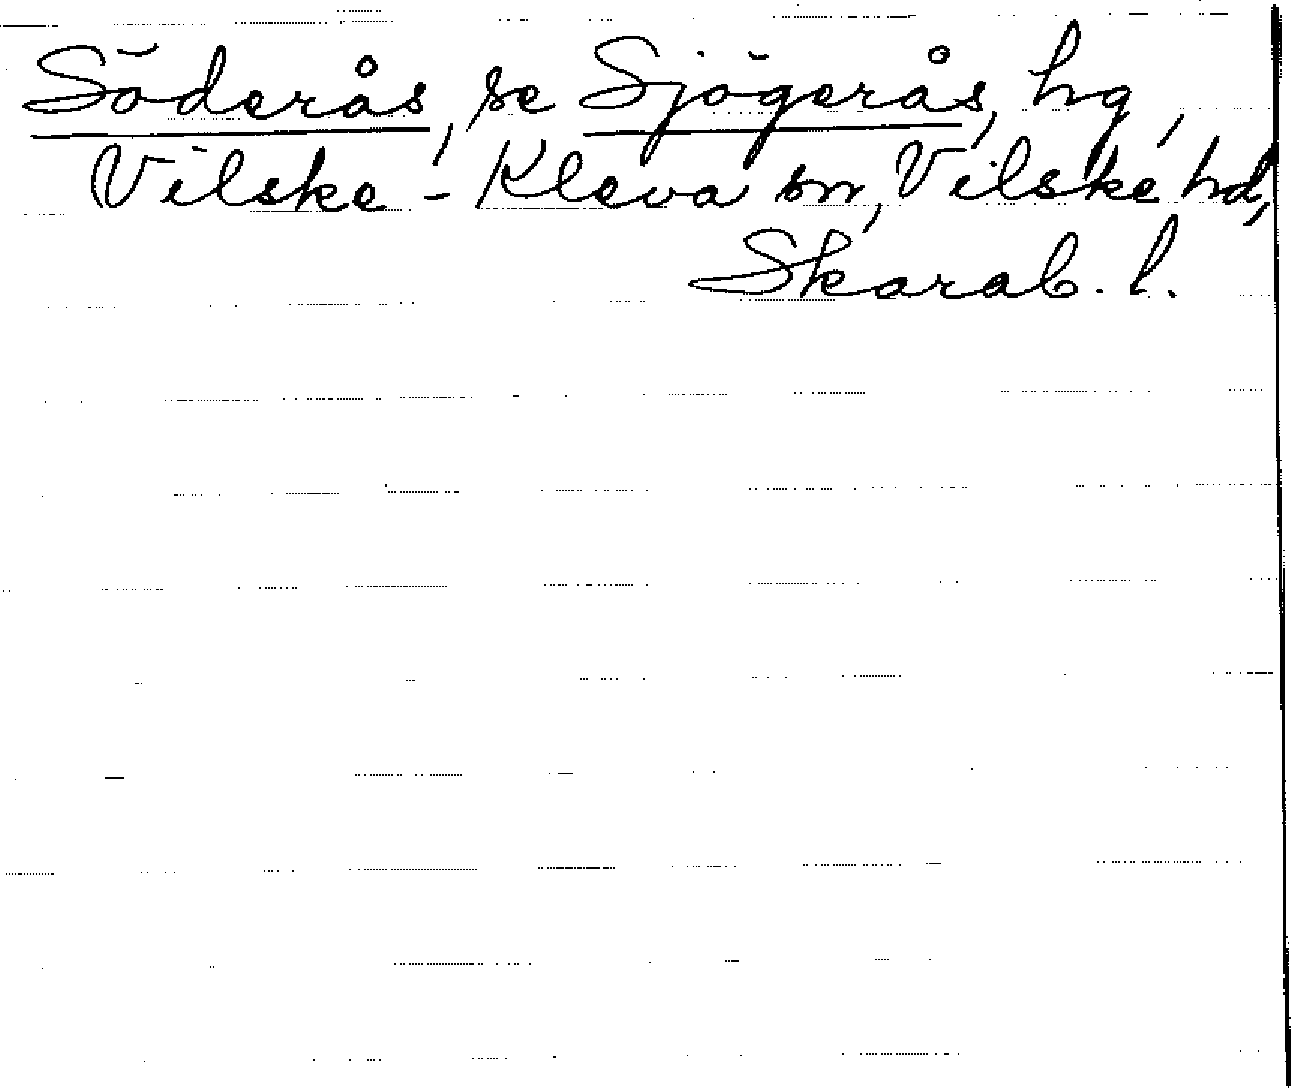 Söderås, se Sjögerås, hg,
Vilske-Kleva sn, Vilske hd,
Skarab. l.